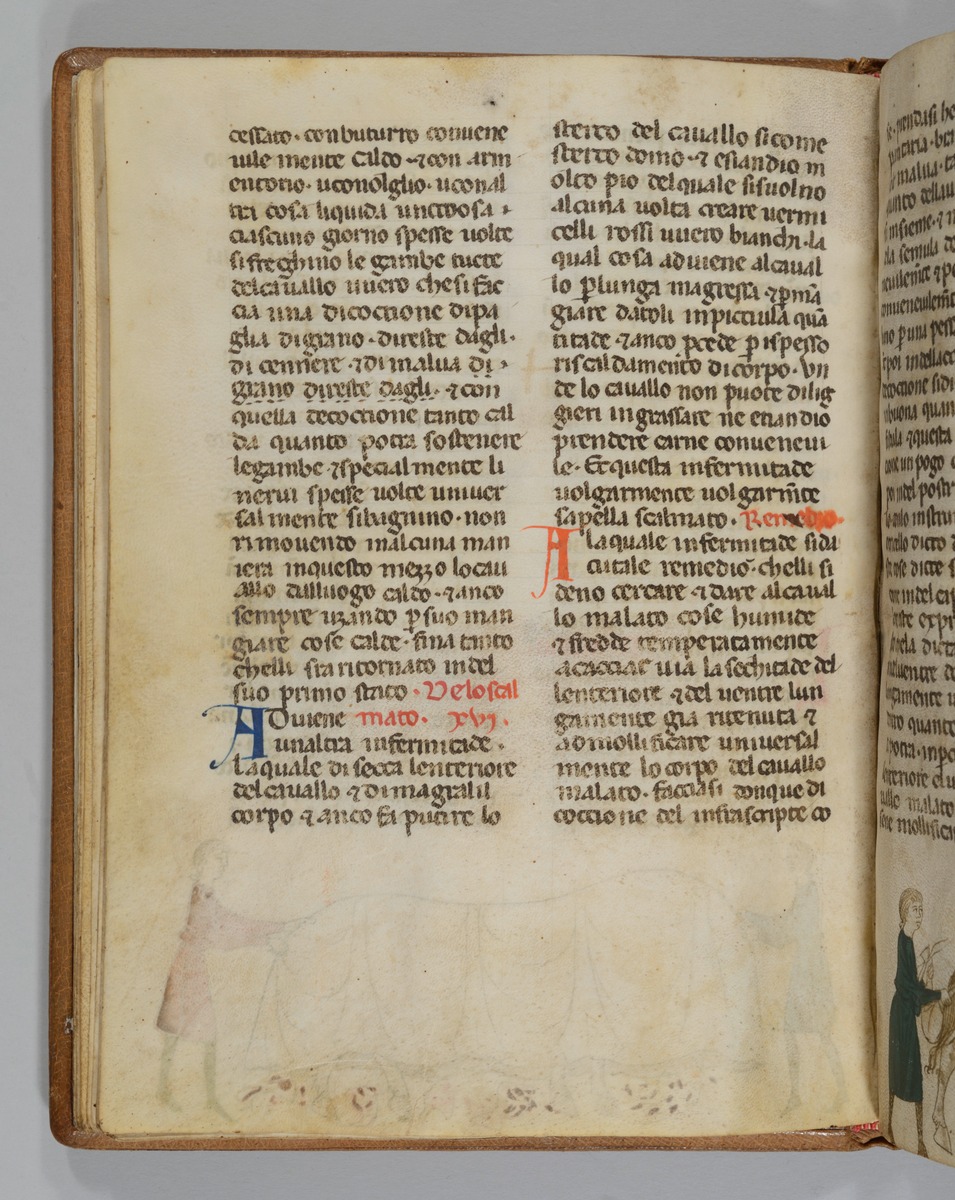 cessato · con buturro conuene
uile mente Caldo · ⁊ con arm
entorio · u conolglio · u con al
tra cosa liquida unctuosa ·
ciascuno giorno spesse uolte
si freghino le gambe tucte
del cauallo uuero che si fac
cia una dicoctione di pa
glia di grano · di reste dagli ·
di cennere · ⁊ di malua di ·
grano di reste dagli · ⁊ con
quella decoctione tanto cal
da quanto potra sostenere
le gambe ⁊ special mente li
nerui spesse uolte uniuer
sal mente si bagnino · non
rimouendo in alcuna man
iera in questo mezzo lo cau
allo dal luogo caldo · ⁊ anco
sempre uzando p suo man
giare cose calde · fina tanto
chelli sia ritornato in del
suo primo stato · Delo scal
ADuiene mato · xvj ·
unaltra infermitade ·
la quale di secca lenteriore
del cauallo ⁊ di magra lil
corpo ⁊ anco fa putire lo
sterco del cauallo si come
sterco domo · ⁊ esiandio m
olto pio del quale si suolno
alcuna uolta creare uermi
celli rossi uuero bianchi · la
qual cosa aduiene al caual
lo p lunga magressa ⁊ p mā
giare datoli in picciula quā
titade · ⁊ anco pcede p ispesso
riscaldamento di corpo · Vn
de lo cauallo non puote dilig
gieri ingrassare ne etiandio
prendere carne conueneui
le · Et questa infermitade
uolgarmente uolgarm̄te
sapella scalmato · Remedio ·
A la quale infermitade si da
cutale remedio · chelli si
deno cercare ⁊ dare al caual
lo malato cose humide
⁊ fredde temperatamente
a cacciar uia la sechitade del
lenteriore ⁊ del uentre lun
gamente gia ritenuta ⁊
ad mollificare uniuersal
mente lo corpo del cauallo
malato · facciasi donque di
coctione del infrascripte co